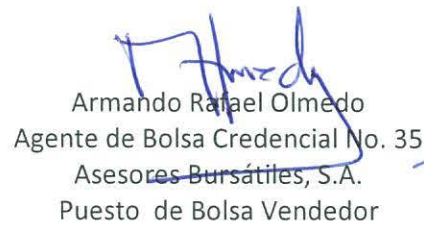 Armando Rafael Olmedo
Agente de Bolsa Credencial No. 35
Asesores Bursátiles, S.A.
Puesto de Bolsa Vendedor